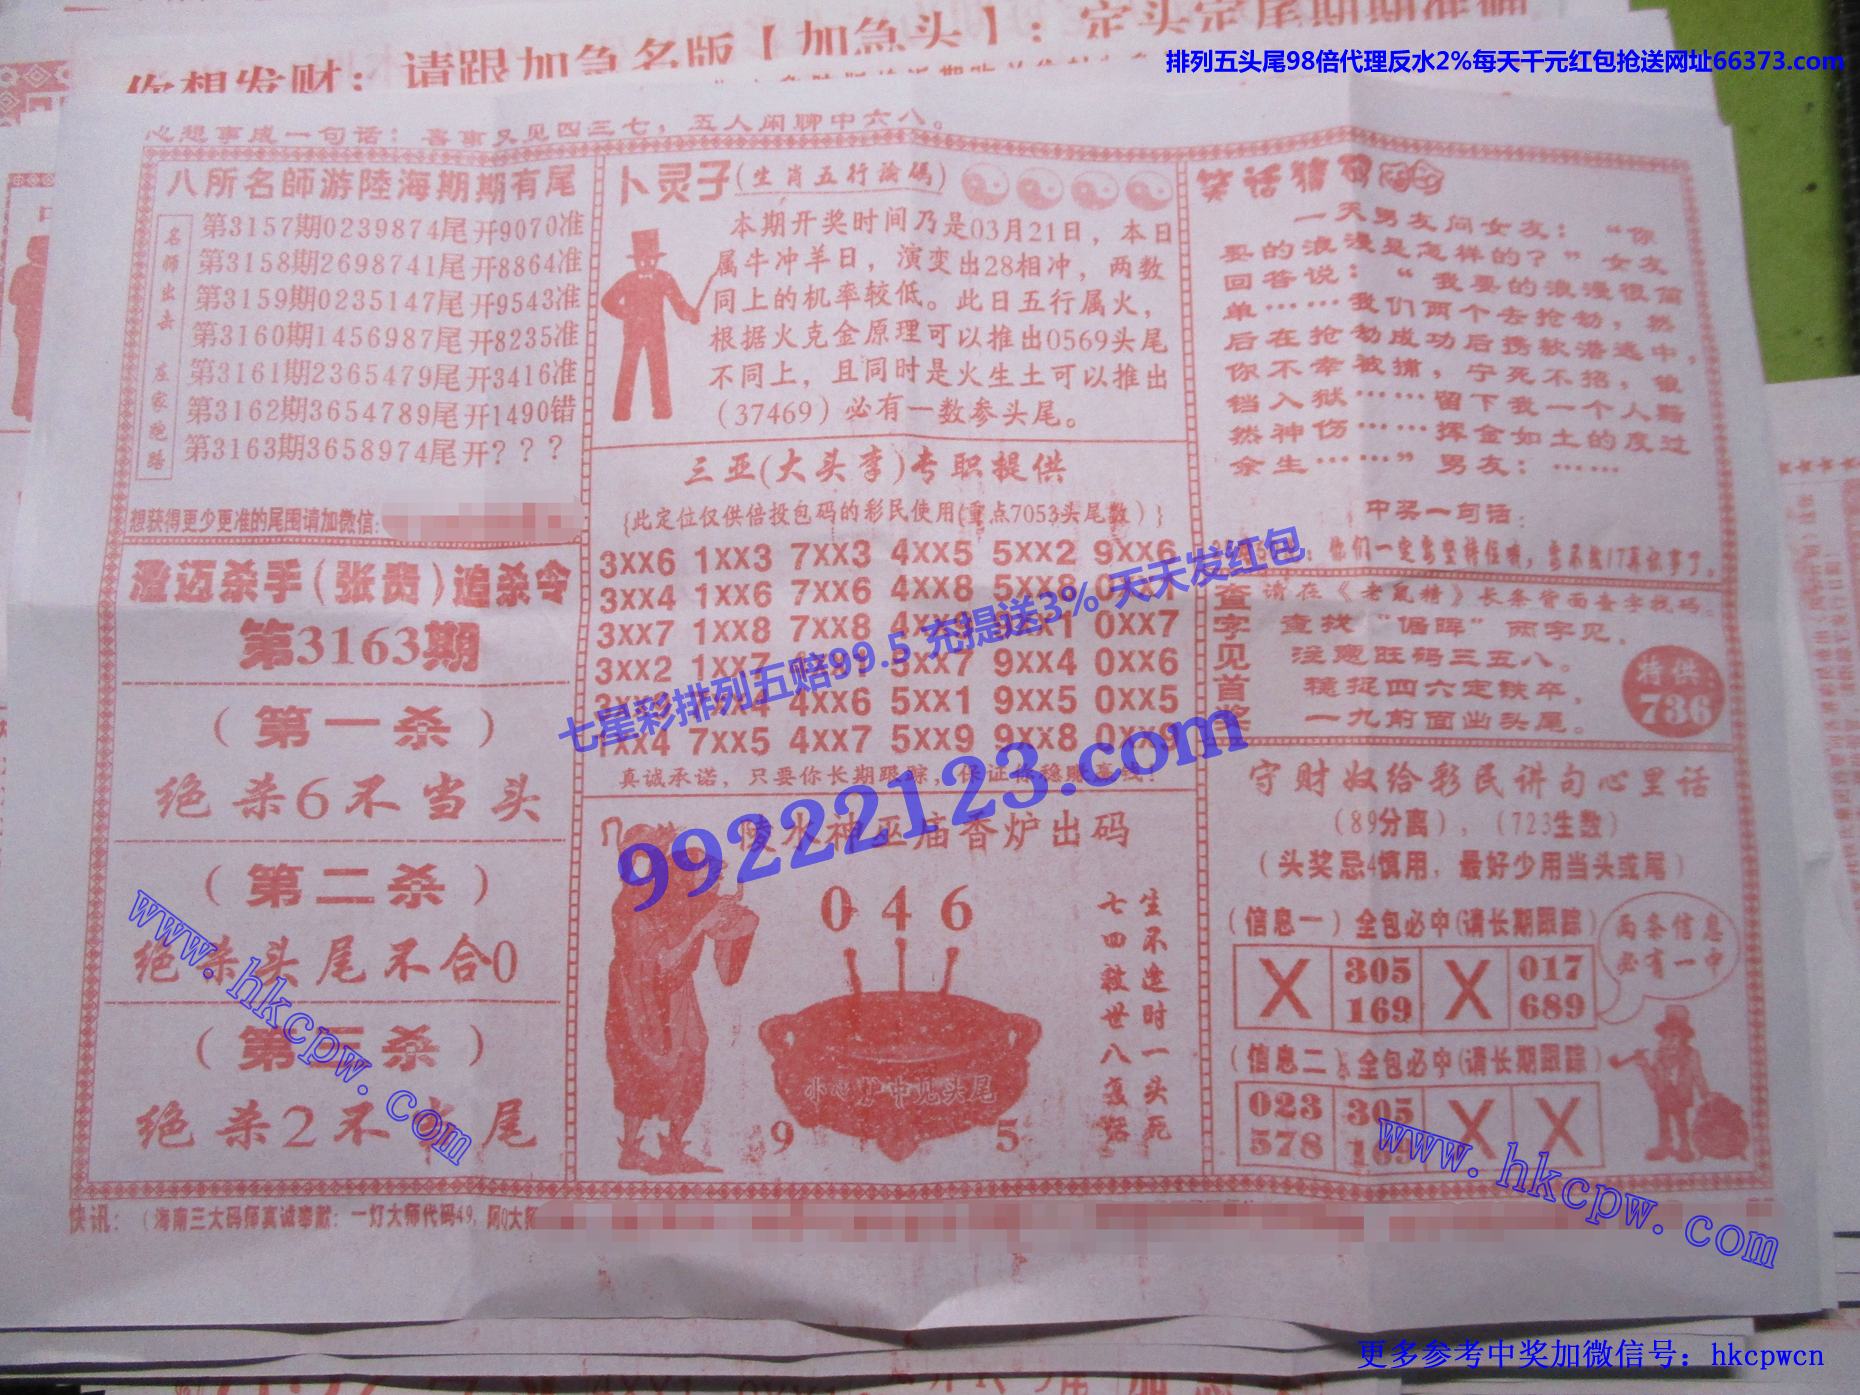 你想发财：请跟加急名版【加急头】：定头定尾期期准确
排列五头尾98倍代理反水2%每天千元红包抢送网址66373.com
心想事成一句话：喜事又见四三七，五人闲聊中六八。
八所名師游陸海期期有尾
名师出击 左家跑路
第3157期0239874尾开9070准
第3158期2698741尾开8864准
第3159期0235147尾开9543准
第3160期1456987尾开8235准
第3161期2365479尾开3416准
第3162期3654789尾开1490错
第3163期3658974尾开？？？
想获得更少更准的尾围请加微信:
澄迈杀手(张贵)追杀令
第3163期
（第一杀）
绝杀6不当头
（第二杀）
绝杀头尾不合0
（第三杀）
绝杀2不当尾
卜灵子(生肖五行論碼)
本期开奖时间乃是03月21日，本日
属牛冲羊日，演变出28相冲，两数
同上的机率较低。此日五行属火，
根据火克金原理可以推出0569头尾
不同上，且同时是火生土可以推出
（37469）必有一数参头尾。
三亚(大头李)专职提供
{此定位仅供倍投包码的彩民使用(重点7053头尾数）}
3xx6 1xx3 7xx3 4xx5 5xx2 9xx6
3xx4 1xx6 7xx6 4xx8 5xx8 0xx1
3xx7 1xx8 7xx8 4xx9 9xx1 0xx7
3xx2 1xx7 5xx7 9xx4 0xx6
4xx6 5xx1 9xx5 0xx5
1xx4 7xx5 4xx7 5xx9 9xx8 0xx9
真诚承诺，只要你长期跟踪，保证你稳赚赢钱！
七星彩排列五赔99.5 充提送3% 天天发红包
99222123.com
陵水神巫庙香炉出码
0 4 6
小心炉中见头尾
9 5
生不逢时一头死
七四救世八怎
笑话猜码
一天男友问女友：“你
要的浪漫是怎样的？”女友
回答说：“我要的浪漫很简
单……我们两个去抢劫，然
后在抢劫成功后携款潜逃中，
你不幸被捕，宁死不招，锒
铛入狱……留下我一个人黯
然神伤……挥金如土的度过
余生……”男友：……
中奖一句话：
你们一定要坚持住哦，
查字见首奖
请在《老鼠精》长条背面查字找码。
查找“倡晖”两字见，
注意旺码三五八。
稳捉四六定铁卒，
一九前面出头尾。
特供：
736
守财奴给彩民讲句心里话
（89分离），（723生数）
（头奖忌4慎用，最好少用当头或尾）
（信息一）全包必中(请长期跟踪)
X 305 169 X 017 689
两条信息
必有一中
（信息二）全包必中(请长期跟踪)
023 578 305 169 X X
快讯：（海南三大码师真诚奉献：一灯大师代码49，阿Q大师
www.hkcpw.com
www.hkcpw.com
更多参考中奖加微信号：hkcpwcn